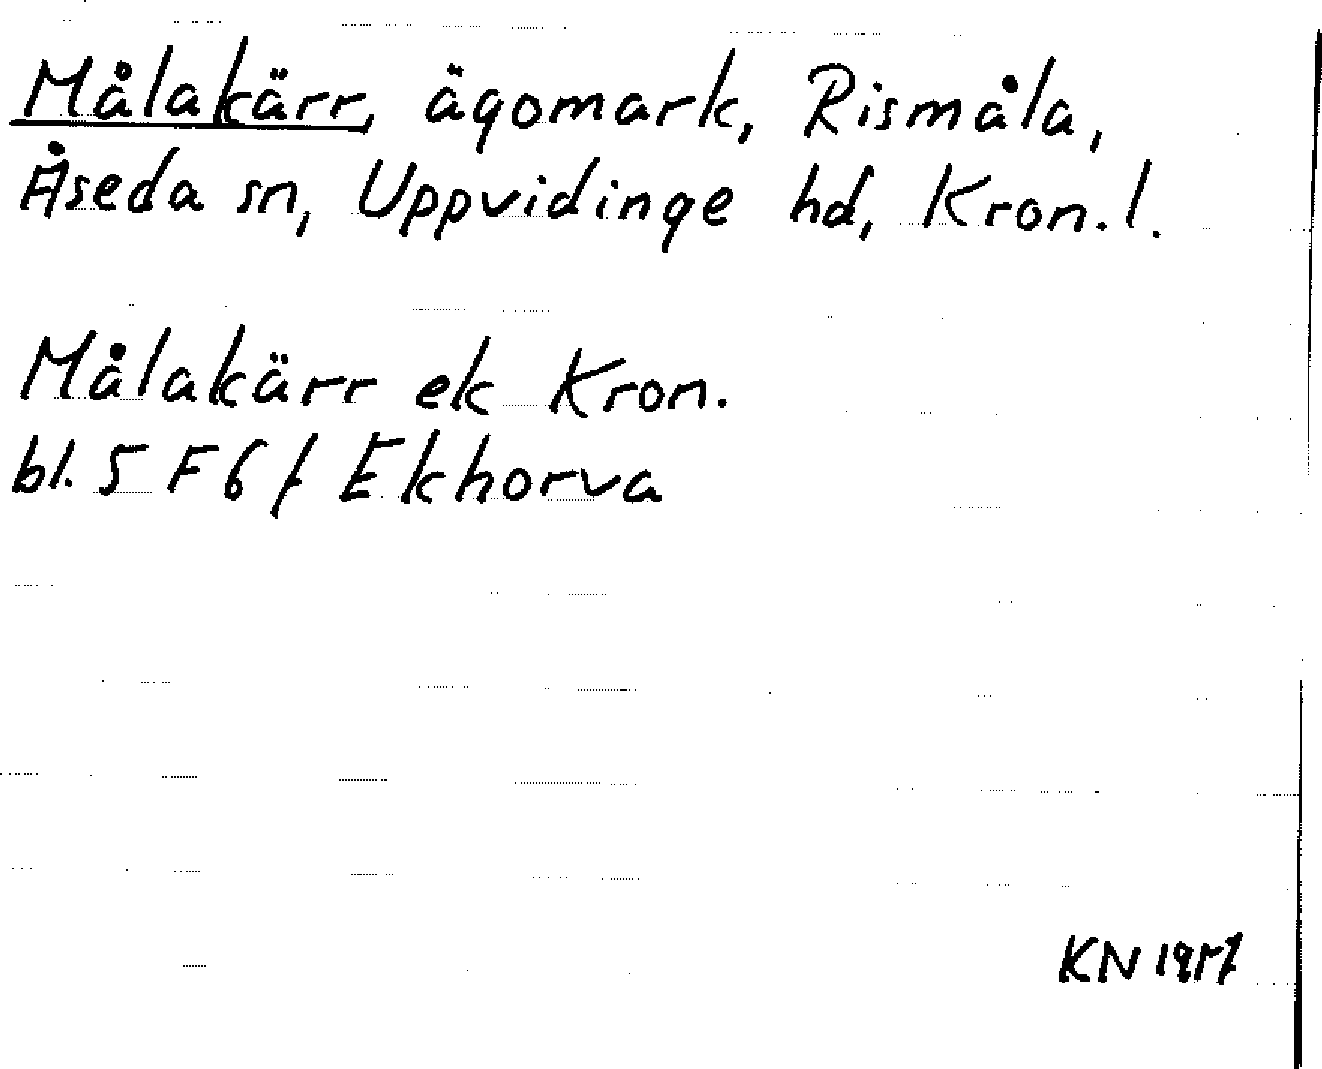 Målakärr, ägomark, Rismåla,
Åseda sn, Uppvidinge hd, Kron. l.
Målakärr ek Kron.
bl. 5 F 6 f Ekhorva
KN 1957